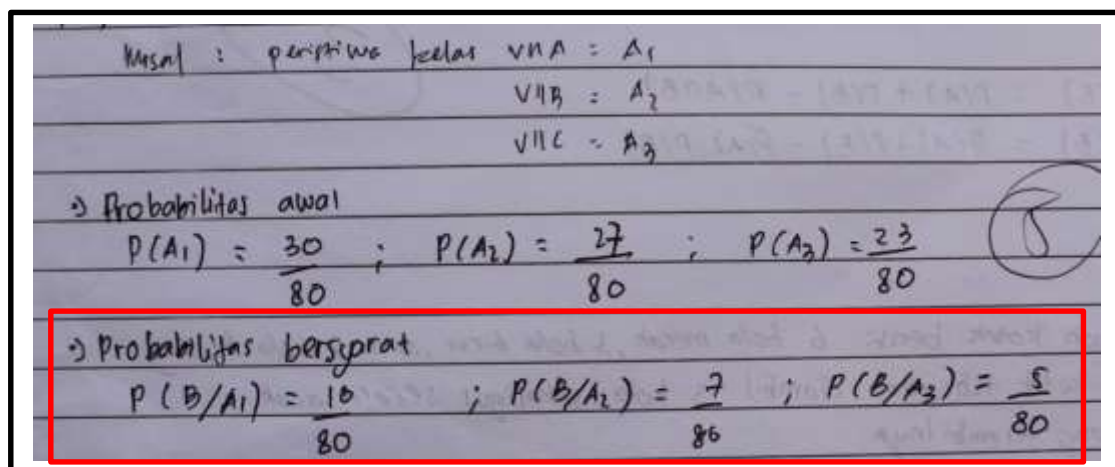 Misal : peristiwa kelas VIIA = A₁
VIIB = A₂
VIIC = A₃
•) Probabilitas awal
P(A₁) = 30/80 ; P(A₂) = 27/80 ; P(A₃) = 23/80
•) Probabilitas bersyarat
P(B/A₁) = 10/80 ; P(B/A₂) = 7/80 ; P(B/A₃) = 5/80